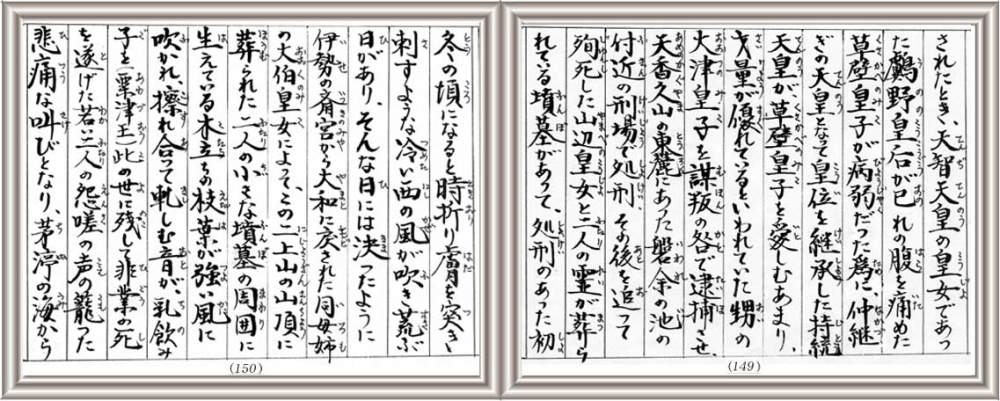 されたとき、天智天皇の皇女であっ
た鸕野皇后が已れの腹を痛めた
草壁皇子が病弱だった為に、仲継
ぎの天皇となって皇位を継承した持統
天皇が草壁皇子を愛しむあまり、
才量が優れているといわれていた甥の
大津皇子を謀叛の咎で逮捕させ、
天香久山の東麓にあった磐余の池の
付近の刑場で処刑、その後を追って
殉死した山辺皇女と二人の霊が葬ら
れている墳墓があって、処刑のあった初
(149)
冬の頃になると時折り膚を突き
刺すような冷い西の風が吹き荒ぶ
日があり、そんな日には決ったように
伊勢の斎宮から大和に戻された同母姉
の大伯皇女によって、この二上山の山頂に
葬られた二人の小さな墳墓の周囲に
生えている木立ちの枝葉が強い風に
吹かれ、擦れ合って軋しむ音が、乳飲み
子を(粟津王)此の世に残して非業の死
を遂げた若い二人の怨嗟の声の籠った
悲痛な叫びとなり、茅渟の海から
(150)